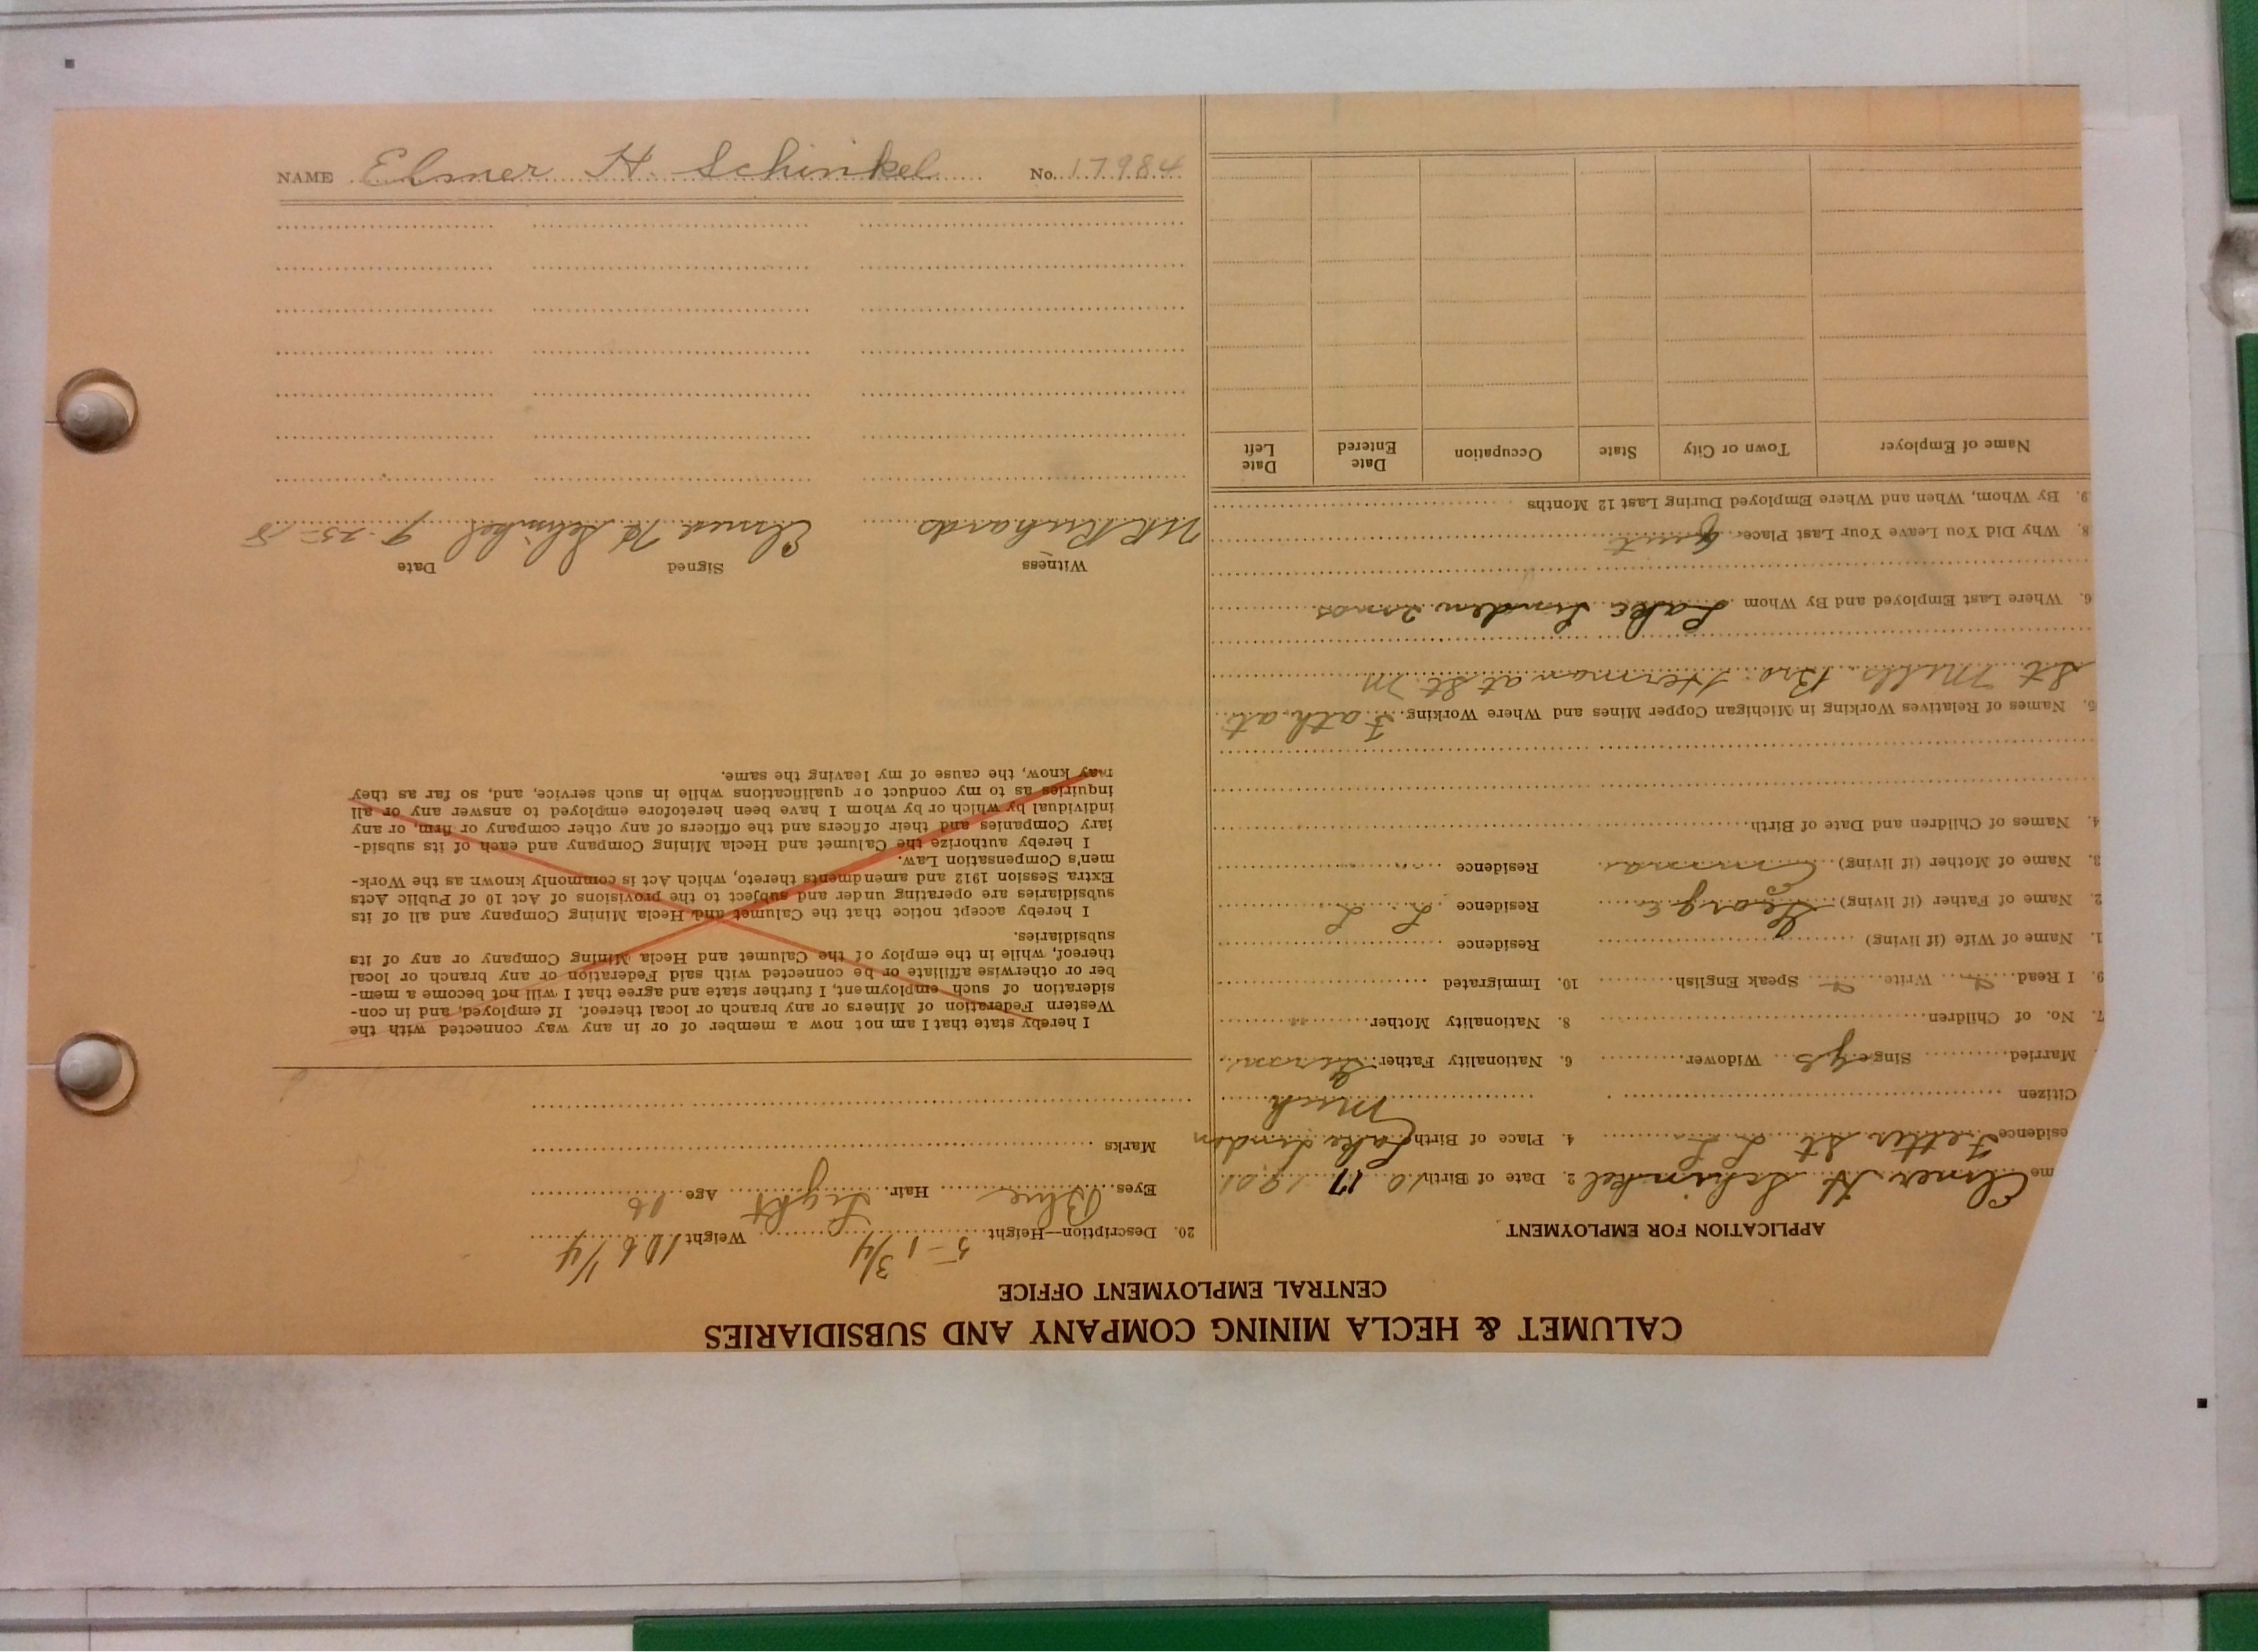 NAME Elmer H. Schinkel No. 17984
CALUMET & HECLA MINING COMPANY AND SUBSIDIARIES
CENTRAL EMPLOYMENT OFFICE
APPLICATION FOR EMPLOYMENT
me Elmer H Schinkel 2. Date of Birth 10 17 1901
esidence St L. L. 4. Place of Birth Lake Linden
Citizen Mich
Married Single yes Widower 6. Nationality Father Germ
7. No. of Children 8. Nationality Mother "
9. I Read Write Speak English 10. Immigrated
1. Name of Wife (if living) Residence
2. Name of Father (if living) George Residence L. L
3. Name of Mother (if living) Emma Residence "
4. Names of Children and Date of Birth
5. Names of Relatives Working in Michigan Copper Mines and Where Working. Fath at
St Mills. Bro. Herman at St. M
6. Where Last Employed and By Whom Lake Linden
8. Why Did You Leave Your Last Place. Quit
9. By Whom, When and Where Employed During Last 12 Months
Name of Employer Town or City State Occupation Date Entered Date Left
20. Description—Height 5-1 3/4 Weight 106 1/4
Eyes Blue Hair Light Age 16
Marks
I hereby state that I am not now a member of or in any way connected with the
Western Federation of Miners or any branch or local thereof. If employed, and in con-
sideration of such employment, I further state and agree that I will not become a mem-
ber or otherwise affiliate or be connected with said Federation or any branch or local
thereof, while in the employ of the Calumet and Hecla Mining Company or any of its
subsidiaries.
I hereby accept notice that the Calumet and Hecla Mining Company and all of its
subsidiaries are operating under and subject to the provisions of Act 10 of Public Acts
Extra Session 1912 and amendments thereto, which Act is commonly known as the Work-
men's Compensation Law.
I hereby authorize the Calumet and Hecla Mining Company and each of its subsid-
iary Companies and their officers and the officers of any other company or firm, or any
individual by which or by whom I have been heretofore employed to answer any or all
inquiries as to my conduct or qualifications while in such service, and, so far as they
may know, the cause of my leaving the same.
Witness Signed Date
Richards Elmer H Schinkel 9-25-18